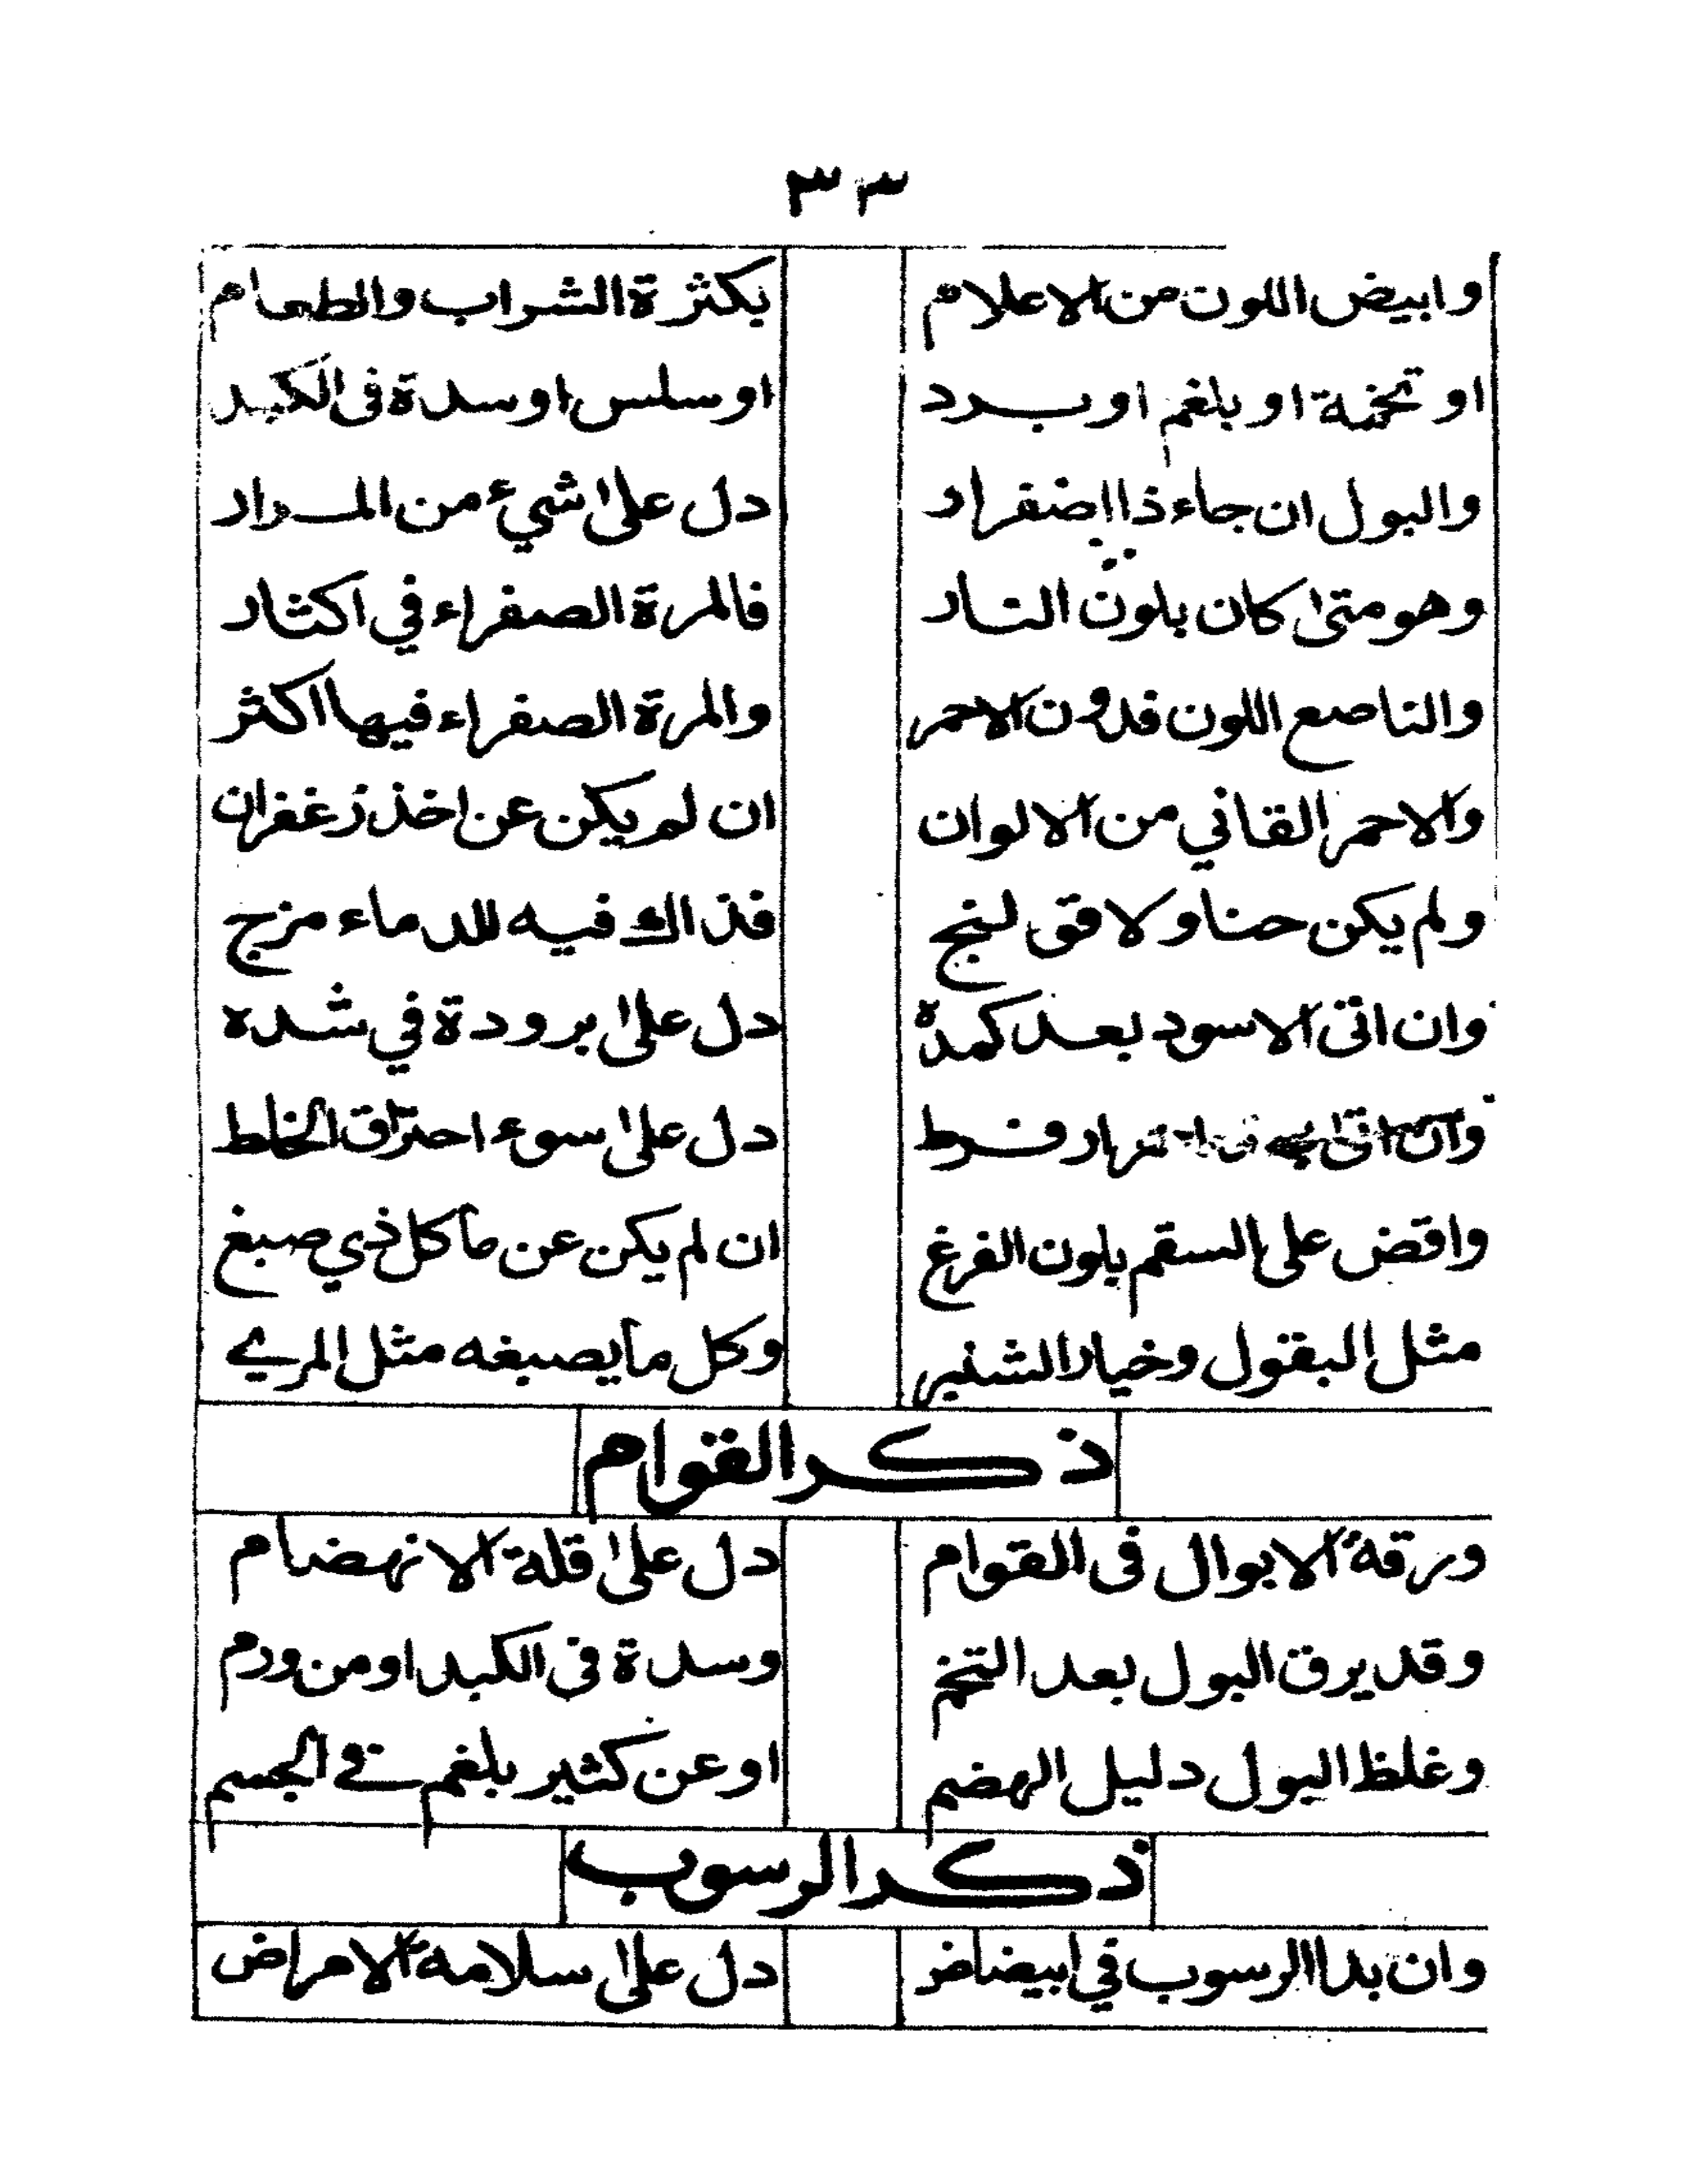 ٣٣
وابيض اللون من الاعلام بكثرة الشراب والطعام
او تخمة او بلغم او برد او سلس او سدة فى الكبد
والبول ان جاء ذا اصفرار دل على شيء من المرار
وهو متى كان بلون النار فالمرة الصفراء في اكثار
والناصع اللون فدون الاحمر والمرة الصفراء فيها اكثر
والاحمر القاني من الالوان ان لم يكن عن اخذ زعفران
ولم يكن حنا ولا قولنج فذالك فيه للدماء مزج
وان اتى الاسود بعد كمدة دل على برودة في شده
وان اتى احمرار فرط دل على سوء احتراق الخلط
واقض على السقم بلون الفرغ ان لم يكن عن مأكل ذي صبغ
مثل البقول وخيار الشنبر وكل ما يصبغه مثل المري
ذكر القوام
ورقة الابوال فى القوام دل على قلة الانهضام
وقد يرق البول بعد التخم وسدة فى الكبد او من ورم
وغلظ البول دليل الهضم او عن كثير بلغم في الجسم
ذكر الرسوب
وان بدا الرسوب في ابيضاض دل على سلامة الامراض